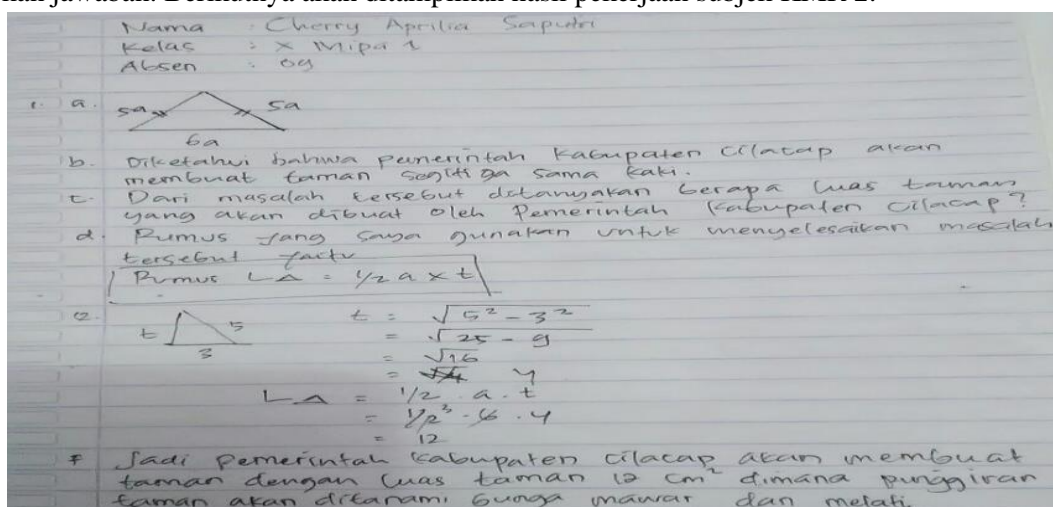 nan jawaban. Berikutnya akan ditampilkan hasil pekerjaan subjek
Nama : Cherry Aprilia Saputri
Kelas : X Mipa 1
Absen : 09
1. a. 5a 5a
6a
b. Diketahui bahwa pemerintah Kabupaten Cilacap akan
membuat taman segitiga sama kaki.
c. Dari masalah tersebut ditanyakan berapa luas taman
yang akan dibuat oleh Pemerintah Kabupaten Cilacap?
d. Rumus yang saya gunakan untuk menyelesaikan masalah
tersebut yaitu
Rumus L△ = 1/2 a x t
e. t 5 t = √5² - 3²
3 = √25 - 9
= √16
= 4
L△ = 1/2 . a . t
= 1/2 ³ . 6 . 4
= 12
f Jadi pemerintah Kabupaten Cilacap akan membuat
taman dengan luas taman 12 cm² dimana punggiran
taman akan ditanami bunga mawar dan melati.